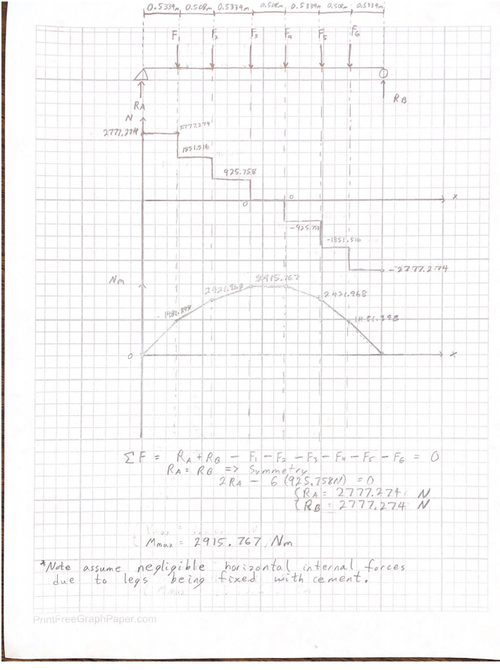 0.5334m 0.508m 0.5334m 0.508m 0.5334m 0.508m 0.5334m
F1 F2 F3 F4 F5 F6
RA
RB
N
2777.274
2777.274
1851.516
925.758
0
0
x
-925.758
-1851.516
-2777.274
Nm
2421.968
2915.767
2421.968
0
x
ΣF = RA + RB - F1 - F2 - F3 - F4 - F5 - F6 = 0
RA = RB => Symmetry
2RA - 6(925.758N) = 0
{RA = 2777.274 N
{RB = 2777.274 N
Mmax = 2915.767 Nm
*Note assume negligible horizontal internal forces
due to legs being fixed with cement.
PrintFreeGraphPaper.com